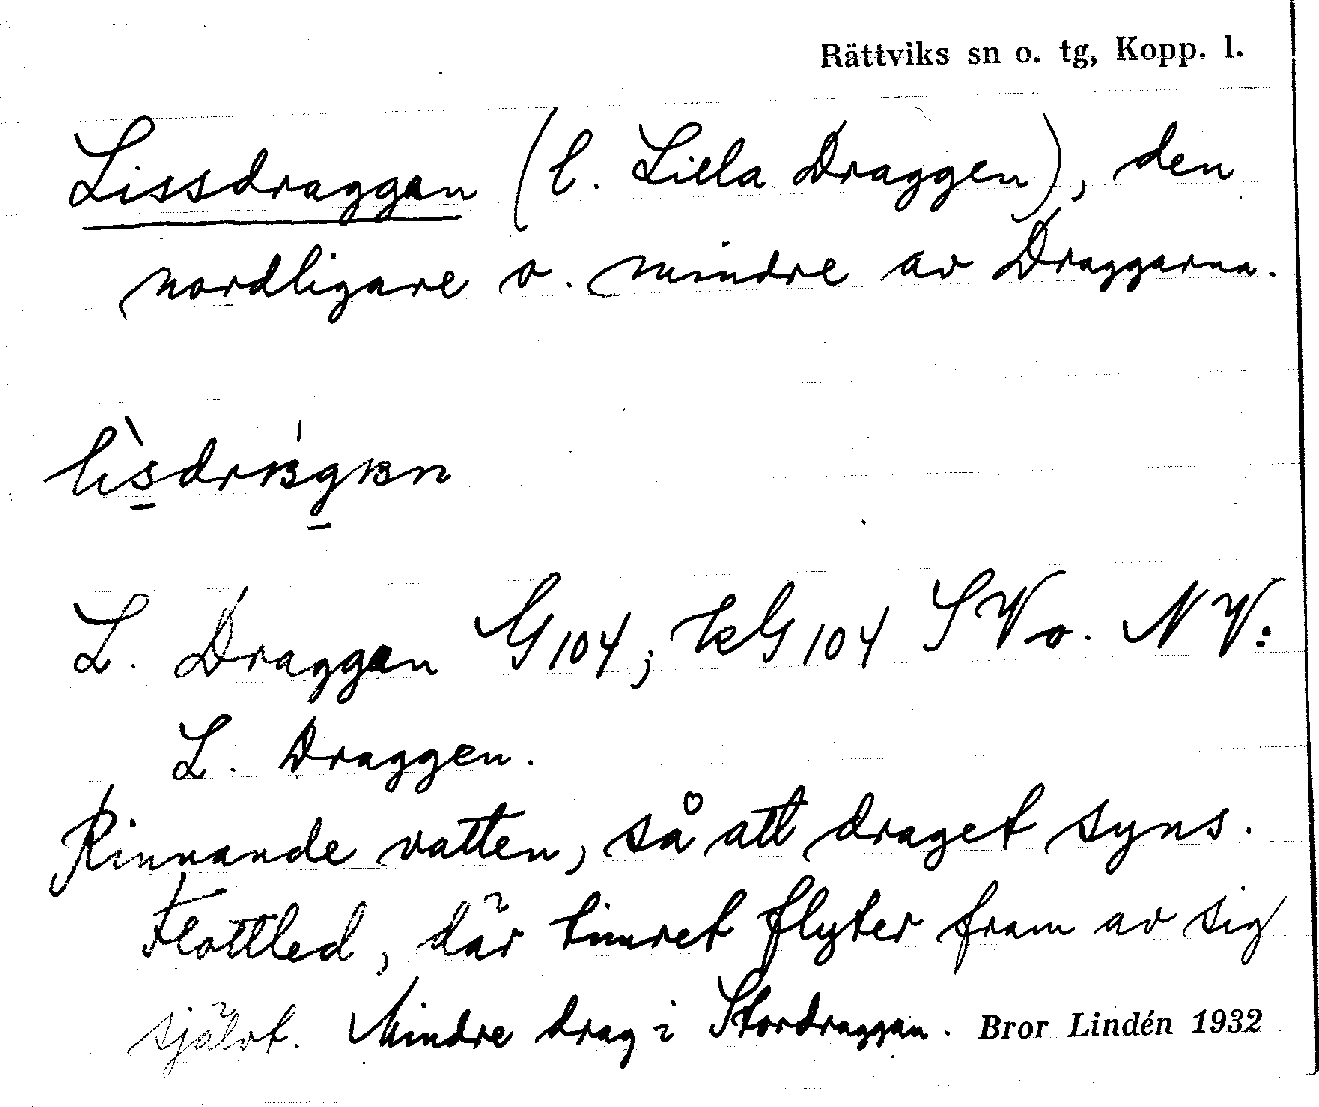 Rättviks sn o. tg, Kopp. l.
Lissdraggan (l. Lilla Draggen), den
nordligare o. mindre av Draggarna.
L. Draggan G104; kG104 SV o. NV:
L. Draggen.
Rinnande vatten, så att draget syns.
Flottled, där timret flyter fram av sig
självt. Mindre drag i Stordraggan. Bror Lindén 1932